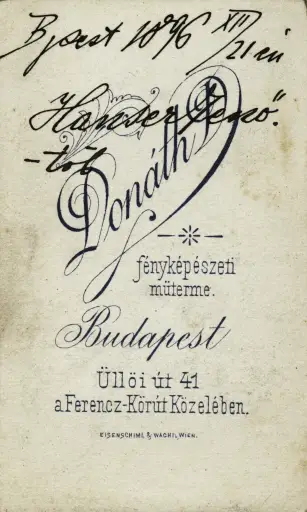 Bpest 1896 XII/21 én
Hauser Jenő.
-től
Donáth D
fényképészeti
műterme.
Budapest
Üllöi út 41
a Ferencz-Körút Közelében.
EISENSCHIML & WACHTL, WIEN.